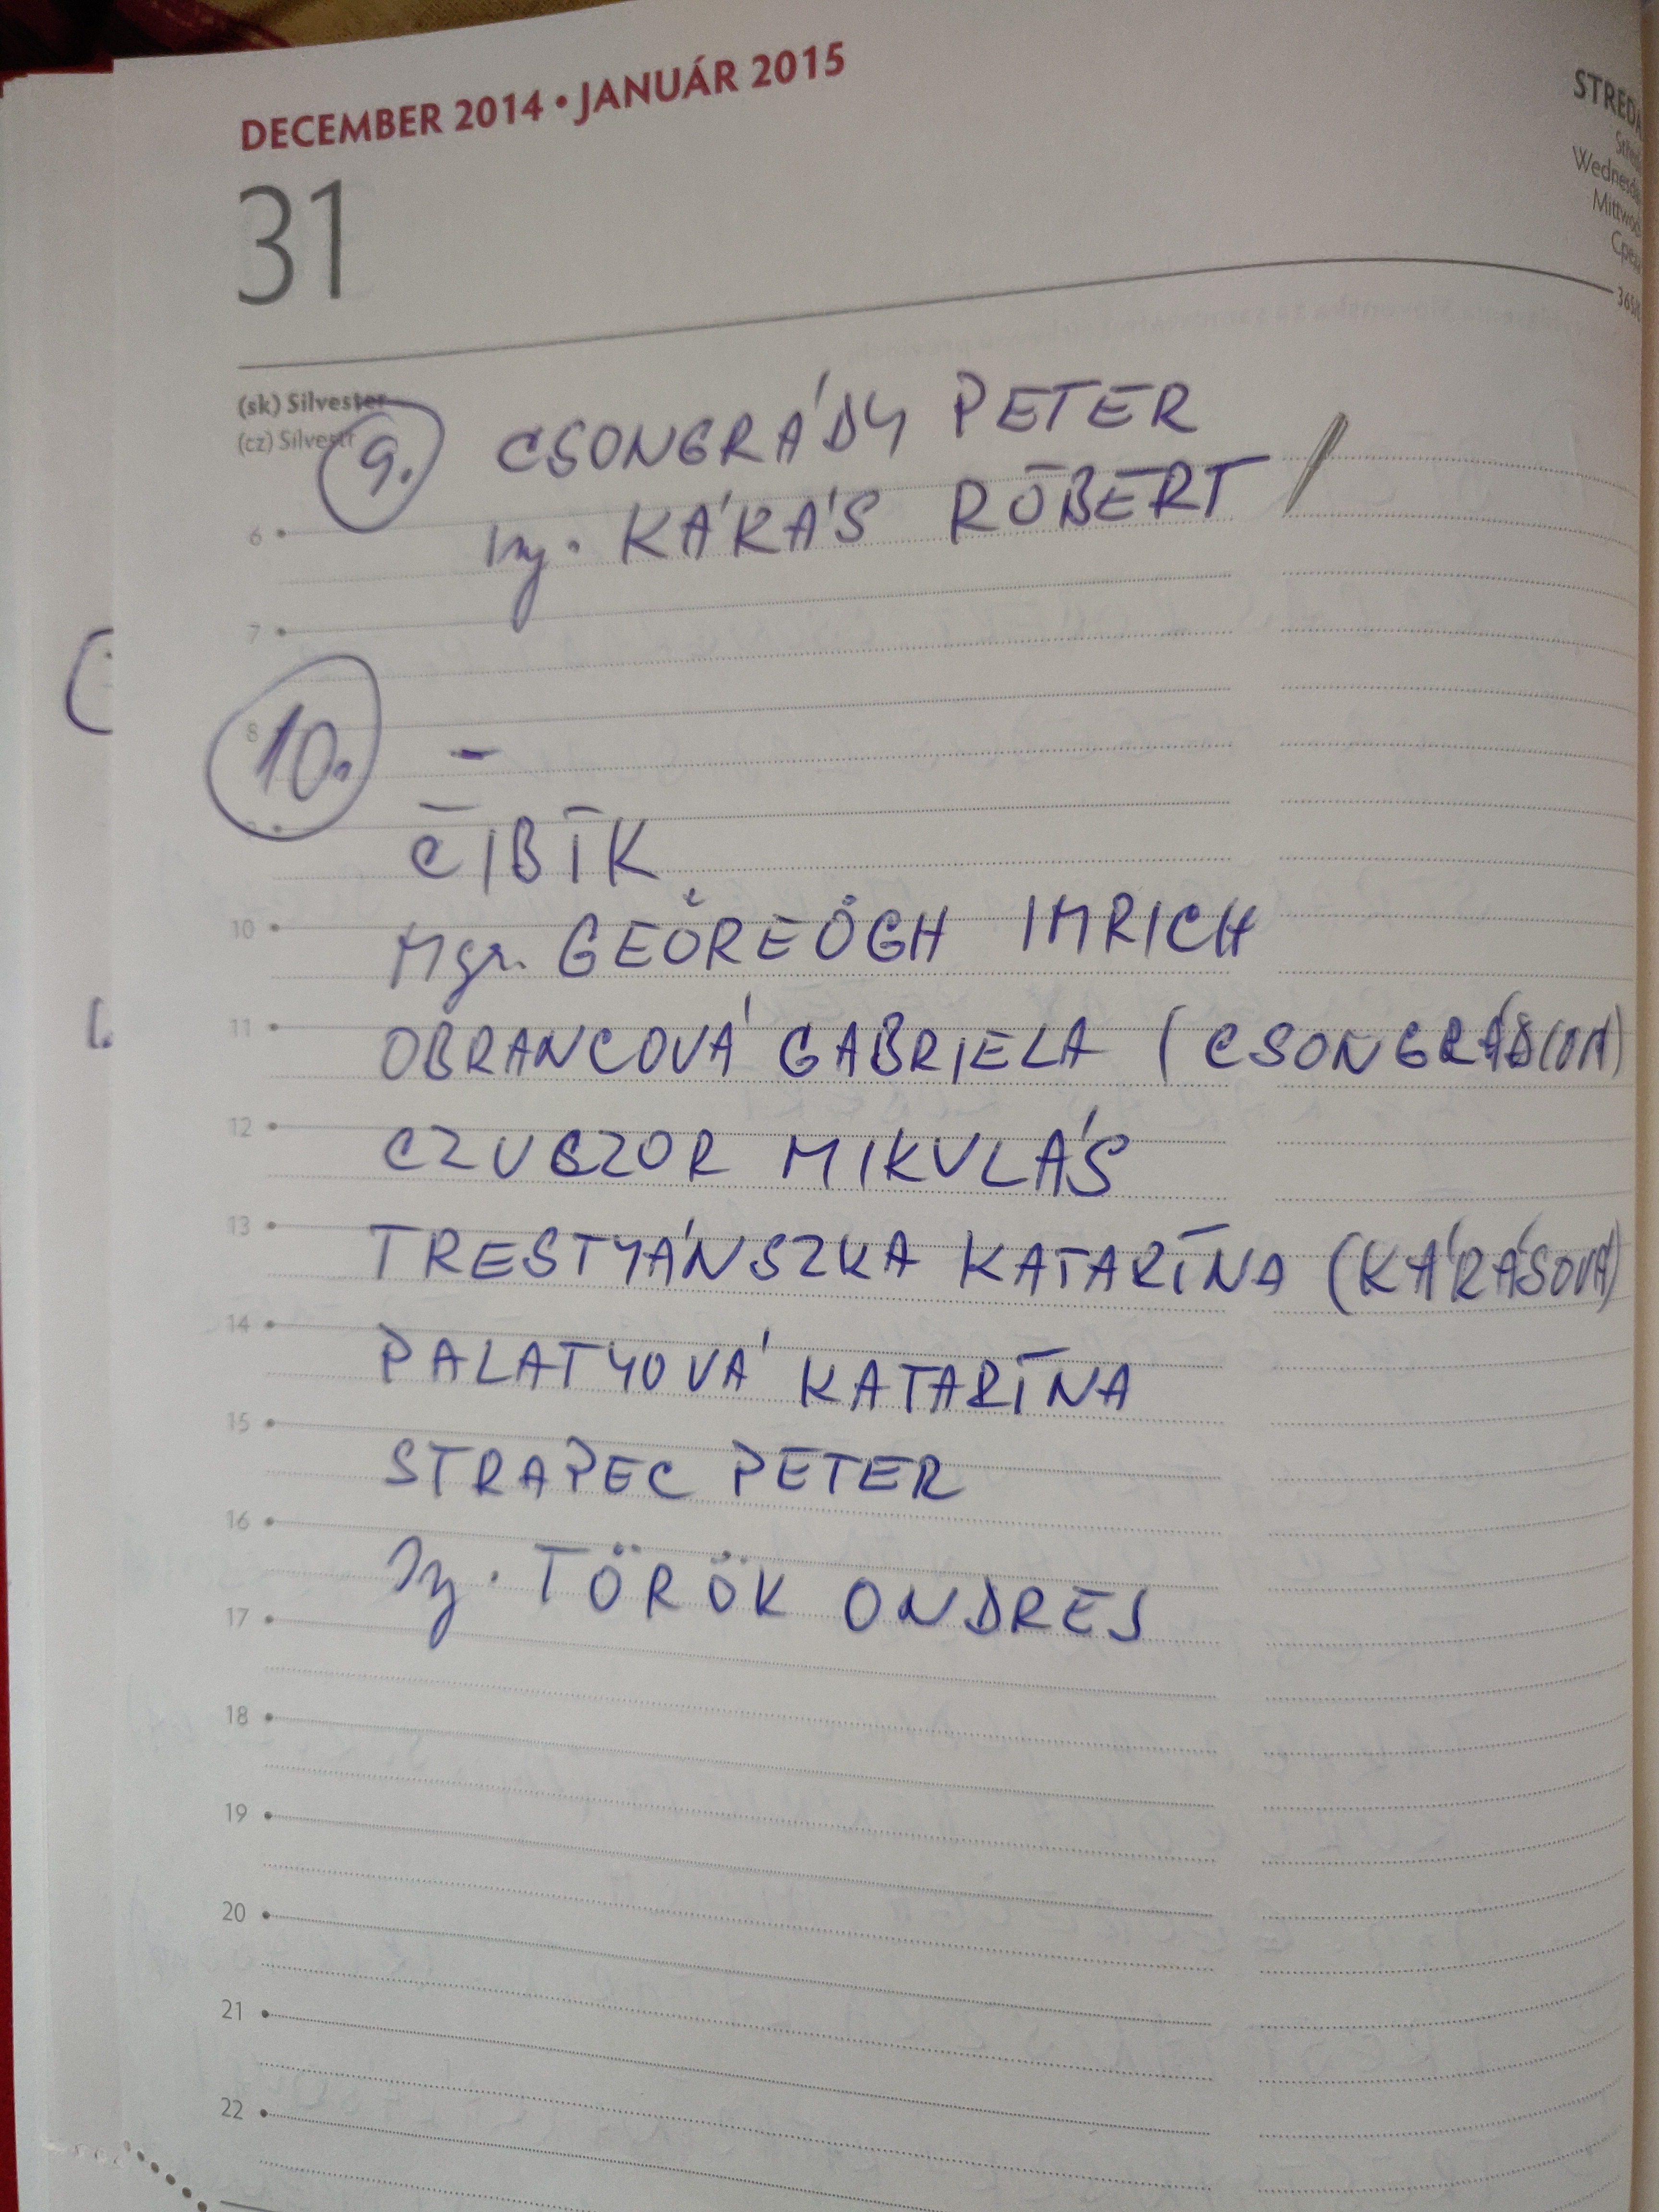 DECEMBER 2014 • JANUÁR 2015
STREDA
31
(sk) Silvester
(cz) Silvestr
9. CSONGRÁDY PETER
Ing. KÁRÁS RÓBERT
6
7
8
10. -
ČIBÍK
Mgr. GEÖREÖGH IMRICH
10
OBRANCOVÁ GABRIELA (CSONGRÁDIOVÁ)
11
CZUCZOR MIKULÁŠ
12
TRESTYÁNSZKA KATARÍNA (KÁRÁSOVÁ)
13
PALATYOVÁ KATARÍNA
14
STRAPEC PETER
15
Ing. TÖRÖK ONDREJ
16
17
18
19
20
21
22